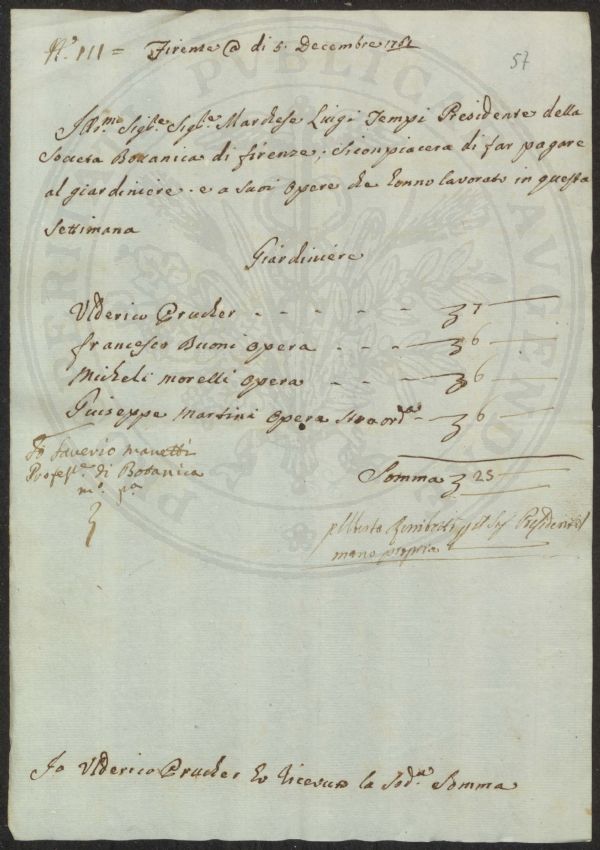 N.º III = Firenze @ di 5. Decembre 1761
57
Ill.mo Sig.re Sig.re Marchese Luigi Tempi Presidente della
Società Bottanica di firenze, Si conpiacera di far pagare
al giardiniére. e a Suoi Opere che hanno lavorato in questa
Settimana
Giardiniére
Ulderico Prucher - - - - - 7
francesco Buoni Opera - - - 6
Micheli Morelli Opera - - - 6
Giuseppe Martini Opera Straord.a - 6
Io Saverio Manetti
Profes.re di Botanica
m.o p.a
Somma 25
Presidente
mano propria
Io Ulderico Prucher ho ricevuto la Sod.a Somma